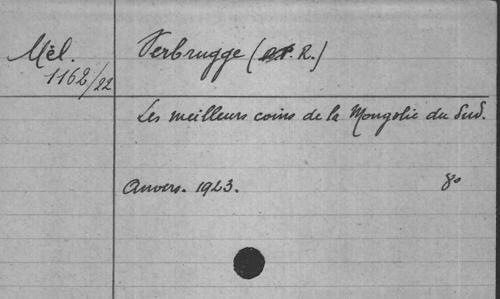 Mél.
1162/22
Verbrugge (R.)
Les meilleurs coins de la Mongolie du Sud.
Anvers. 1923. 8°